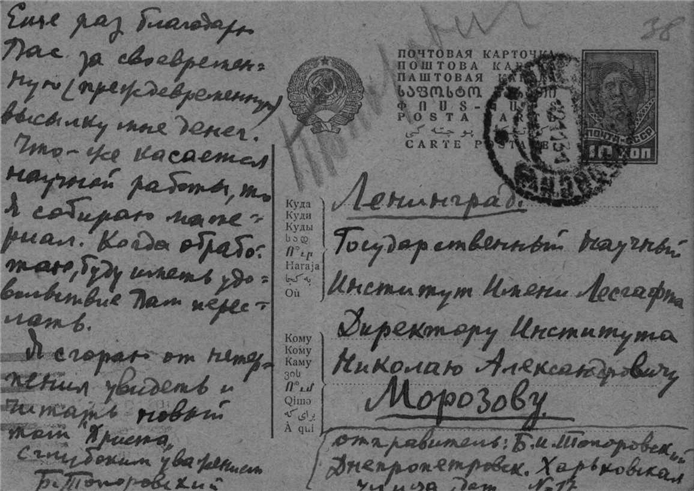 Еще раз благодарю
Вас за своевремен-
ную (преждевременную)
высылку мне денег.
Что-же касается
научной работы, то
я собираю мате-
риал. Когда обрабо-
таю, буду иметь удо-
вольствие Вам перес-
лать.
Я сгораю от нетер-
пения увидеть и
читать новый
том "Христа"
с глубоким уважением
Б. Топоровский
38
ПОЧТОВАЯ КАРТОЧКА
ПОШТОВА
ПАШТОВАЯ
POSTA
CARTE
ПОЧТА СССР
10 КОП
Куда
Куди
Куды
Haraja
Où
Ленинград.
Государственный Научный
Институт Имени Лесгафта
Кому
Кому
Каму
Qimə
À qui
Директору Института
Николаю Александровичу
Морозову.
отправитель: Б.И. Топоровский
Днепропетровск. Харьковская